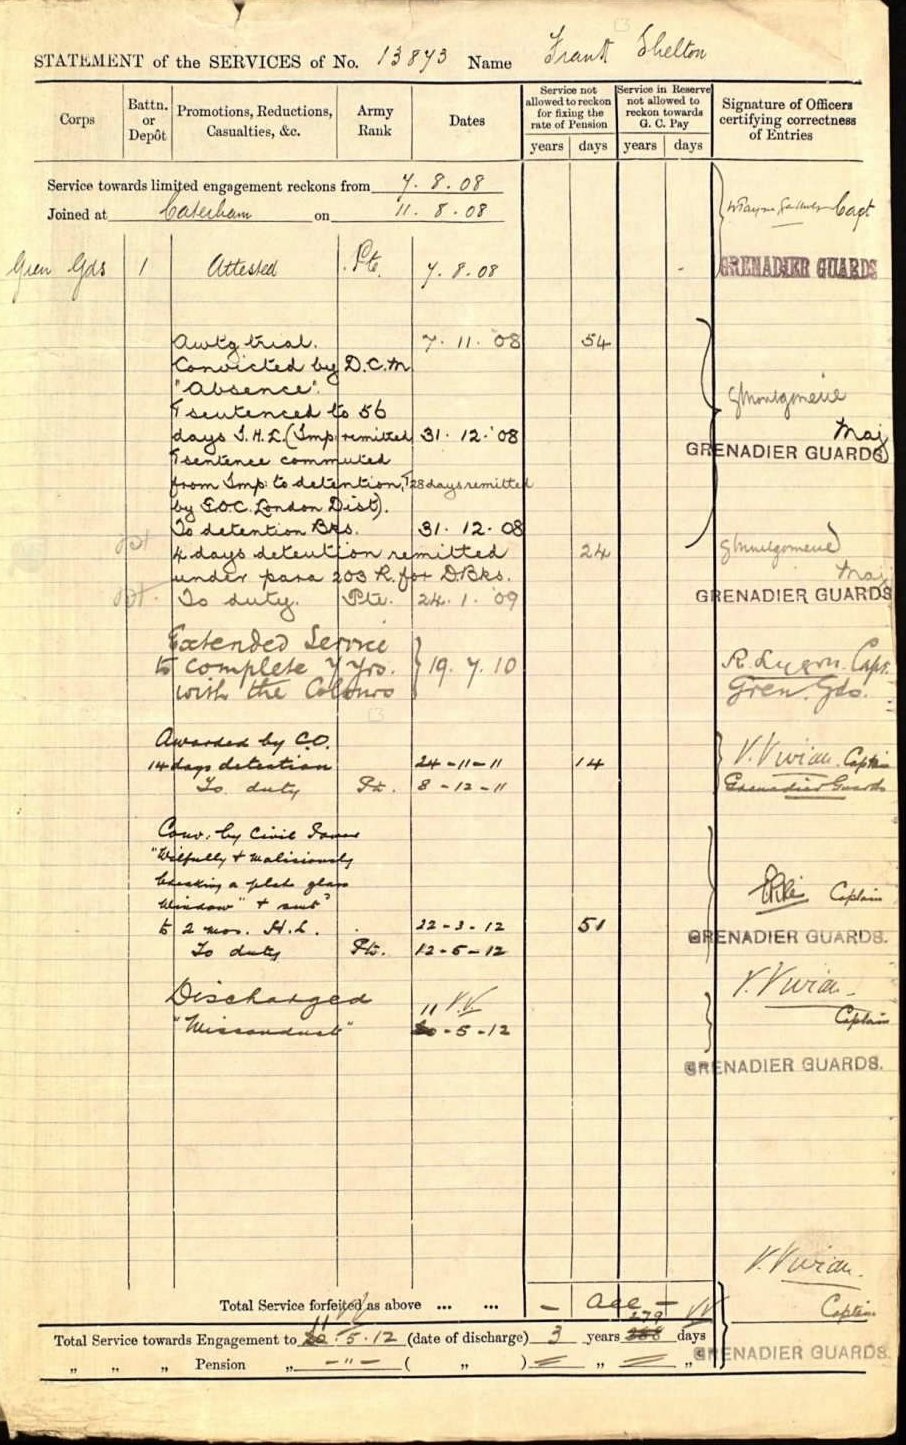 STATEMENT of the SERVICES of No. 13873 Name Frank Shelton
Corps
Battn. or Depôt
Promotions, Reductions, Casualties, &c.
Army Rank
Dates
Service not allowed to reckon for fixing the rate of Pension
years days
Service in Reserve not allowed to reckon towards G. C. Pay
years days
Signature of Officers certifying correctness of Entries
Service towards limited engagement reckons from 7. 8. 08
Joined at Caterham on 11. 8. 08
Capt
GRENADIER GUARDS
Gren Gds 1 Attested Pte. 7. 8. 08
Awtg trial. 7. 11. '08 54
Convicted by D.C.M
"Absence".
& sentenced to 56
days I.H.L. (Imp: remitted 31. 12. '08
& sentence commuted
from Imp: to detention, & 28 days remitted
by G.O.C. London Dist).
To detention Bks. 31. 12. 08
GMontgomerie
Maj
GRENADIER GUARDS
4 days detention remitted 24
under para 203 R. for D.Bks.
To duty. Pte. 24. 1. '09
GMontgomerie
Maj
GRENADIER GUARDS
Extended Service
to complete 7 yrs. 19. 7. 10
with the Colours
R. Lygon. Capt.
Gren. Gds.
Awarded by C.O.
14 days detention 24-11-11 14
To duty Pt. 8-12-11
V. Vivian. Captain
Grenadier Guards
Conv. by Civil Power
"Wilfully & Maliciously
breaking a plate glass
window" & sent?
to 2 mos. H.L. 22-3-12 51
To duty Pte. 12-5-12
Captain
GRENADIER GUARDS.
Discharged 11 V.V.
"Misconduct" 20-5-12
V. Vivian.
Captain
GRENADIER GUARDS.
V. Vivian.
Captain
GRENADIER GUARDS.
Total Service forfeited as above ... ... — all —
Total Service towards Engagement to 11 20.5.12 (date of discharge) 3 years 279 288 days VV
„ „ „ Pension „ — " — ( „ ) = „ = „